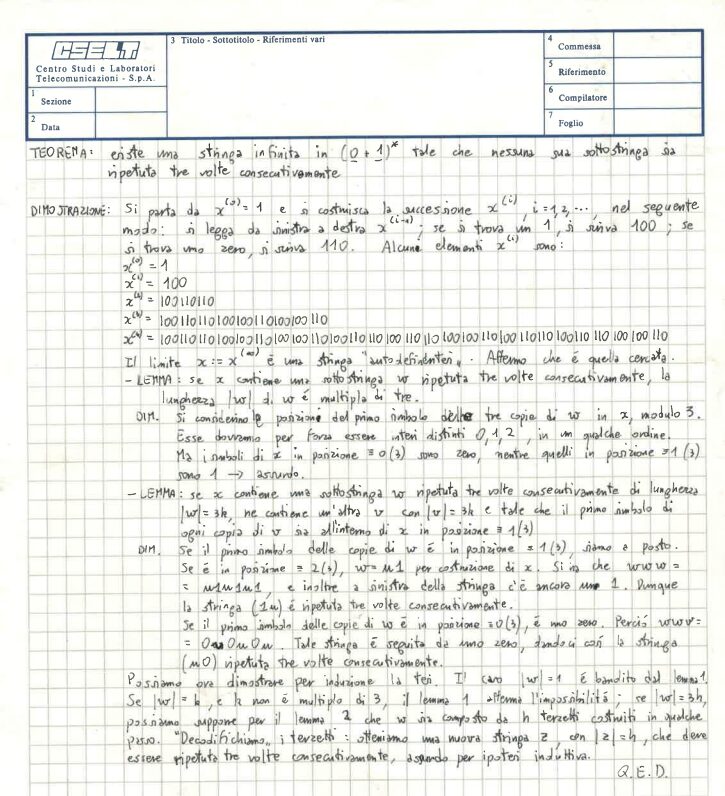 CSELT
Centro Studi e Laboratori
Telecomunicazioni - S.p.A.
1 Sezione
2 Data
3 Titolo - Sottotitolo - Riferimenti vari
4 Commessa
5 Riferimento
6 Compilatore
7 Foglio
TEOREMA: esiste una stringa infinita in (0 + 1)* tale che nessuna sua sottostringa sia
ripetuta tre volte consecutivamente
DIMOSTRAZIONE: Si parta da x^(0) = 1 e si costruisca la successione x^(i), i=1,2,..., nel seguente
modo: si legga da sinistra a destra x^(i-1); se si trova un 1, si scriva 100; se
si trova uno zero, si scriva 110. Alcuni elementi x^(i) sono:
x^(0) = 1
x^(1) = 100
x^(2) = 100110110
x^(3) = 100110110100100110100100110
x^(4) = 100110110100100110100100110100110110100110110100100110100110110100110110100100110
Il limite x := x^(∞) è una stringa "autodefinentesi". Affermo che è quella cercata.
- LEMMA: se x contiene una sottostringa w ripetuta tre volte consecutivamente, la
lunghezza |w| di w è multipla di tre.
DIM. Si considerino le posizioni del primo simbolo delle tre copie di w in x, modulo 3.
Esse dovranno per forza essere interi distinti 0,1,2, in un qualche ordine.
Ma i simboli di x in posizione ≡ 0(3) sono zero, mentre quelli in posizione ≡ 1(3)
sono 1 → assurdo.
- LEMMA: se x contiene una sottostringa w ripetuta tre volte consecutivamente di lunghezza
|w| = 3k, ne contiene un'altra v con |v| = 3k e tale che il primo simbolo di
ogni copia di v sia all'interno di x in posizione ≡ 1(3)
DIM. Se il primo simbolo delle copie di w è in posizione ≡ 1(3), siamo a posto.
Se è in posizione ≡ 2(3), w = u1 per costruzione di x. Si ha che www =
= u1u1u1, e inoltre a sinistra della stringa c'è ancora un 1. Dunque
la stringa (1u) è ripetuta tre volte consecutivamente.
Se il primo simbolo delle copie di w è in posizione ≡ 0(3), è uno zero. Perciò www =
= 0u0u0u. Tale stringa è seguita da uno zero, dandoci così la stringa
(u0) ripetuta tre volte consecutivamente.
Possiamo ora dimostrare per induzione la tesi. Il caso |w| = 1 è bandito dal lemma 1.
Se |w| = k, e k non è multiplo di 3, il lemma 1 afferma l'impossibilità; se |w| = 3h,
possiamo supporre per il lemma 2 che w sia composto da h terzetti costruiti in qualche
passo. "Decodifichiamo" i terzetti: otteniamo una nuova stringa z, con |z| = h, che deve
essere ripetuta tre volte consecutivamente, assurdo per ipotesi induttiva.
Q.E.D.